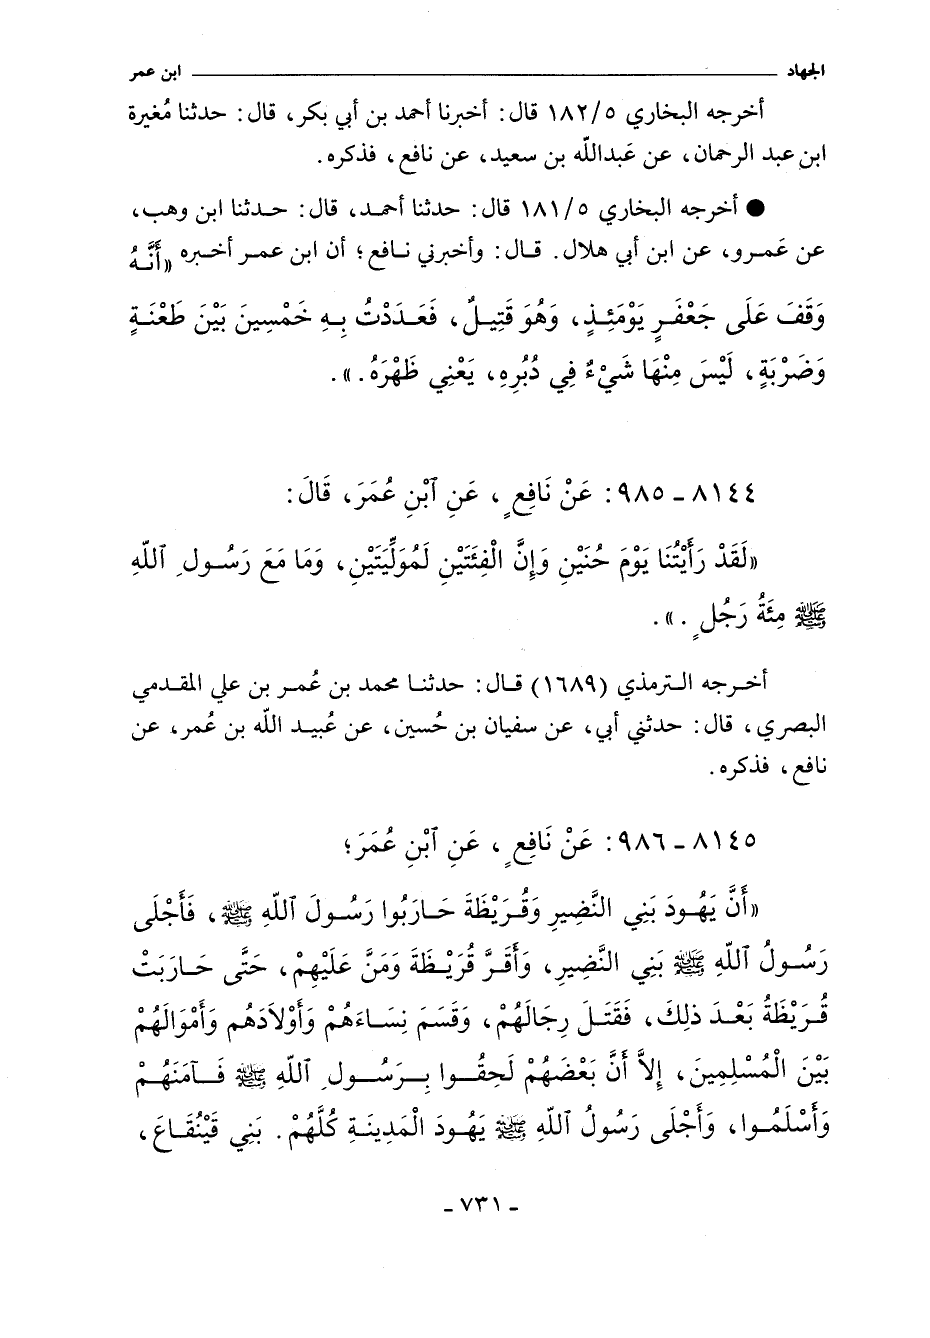 الجهاد ابن عمر
أخرجه البخاري ١٨٢/٥ قال: أخبرنا أحمد بن أبي بكر، قال: حدثنا مُغيرة
ابن عبد الرحمان، عن عَبدالله بن سعيد، عن نافع، فذكره.
● أخرجه البخاري ١٨١/٥ قال: حدثنا أحمد، قال: حدثنا ابن وهب،
عن عَمرو، عن ابن أبي هلال. قال: وأخبرني نافع؛ أن ابن عمر أخبره «أَنَّهُ
وَقَفَ عَلَى جَعْفَرٍ يَوْمَئِذٍ، وَهُوَ قَتِيلٌ، فَعَدَدْتُ بِهِ خَمْسِينَ بَيْنَ طَعْنَةٍ
وَضَرْبَةٍ، لَيْسَ مِنْهَا شَيْءٌ فِي دُبُرِهِ، يَعْنِي ظَهْرَهُ.».
٨١٤٤ - ٩٨٥: عَنْ نَافِعٍ، عَنِ ٱبْنِ عُمَرَ، قَالَ:
«لَقَدْ رَأَيْتُنَا يَوْمَ حُنَيْنِ وَإِنَّ الْفِئَتَيْنِ لَمُوَلِّيَتَيْنِ، وَمَا مَعَ رَسُولِ ٱللهِ
ﷺ مِئَةُ رَجُلٍ.».
أخرجه الترمذي (١٦٨٩) قال: حدثنا محمد بن عُمر بن علي المقدمي
البصري، قال: حدثني أبي، عن سفيان بن حُسين، عن عُبيد الله بن عُمر، عن
نافع، فذكره.
٨١٤٥ - ٩٨٦: عَنْ نَافِعٍ، عَنِ ٱبْنِ عُمَرَ؛
«أَنَّ يَهُودَ بَنِي النَّضِيرِ وَقُرَيْظَةَ حَارَبُوا رَسُولَ ٱللهِ ﷺ، فَأَجْلَى
رَسُولُ ٱللهِ ﷺ بَنِي النَّضِيرِ، وَأَقَرَّ قُرَيْظَةَ وَمَنَّ عَلَيْهِمْ، حَتَّى حَارَبَتْ
قُرَيْظَةُ بَعْدَ ذلِكَ، فَقَتَلَ رِجَالَهُمْ، وَقَسَمَ نِسَاءَهُمْ وَأَوْلاَدَهُم وَأَمْوَالَهُمْ
بَيْنَ الْمُسْلِمِينَ، إِلاَّ أَنَّ بَعْضَهُمْ لَحِقُوا بِرَسُولِ ٱللهِ ﷺ فَآمَنَهُمْ
وَأَسْلَمُوا، وَأَجْلَى رَسُولُ ٱللهِ ﷺ يَهُودَ الْمَدِينَةِ كُلَّهُمْ. بَنِي قَيْنُقَاعَ،
- ٧٣١ -